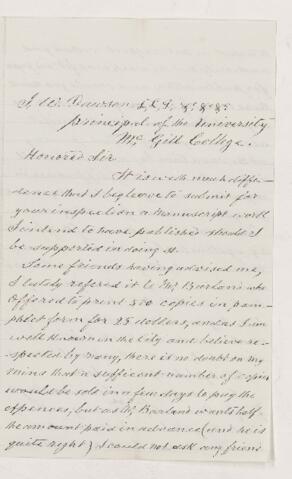 J. W. Dawson L.L.D. &c &c &c
principal of the University
Mc Gill College.
Honored Sir
It is with much diffe-
dence that I beg leave to submit for
your inspection a manuscript work
I intend to have published should I
be supported in doing it.
Some friends having advised me,
I lately refered it to Mr Barland who
offered to print 500 copies in pam-
phlet form for 25 dollars, and as I am
well known in the City and believe re-
spected by many, there is no doubt on my
mind that a sufficent number of copies
would be sold in a few days to pay the
expences, but as Mr Barland wants half
the amount paid in advance (and he is
quite right) I could not ask any friend